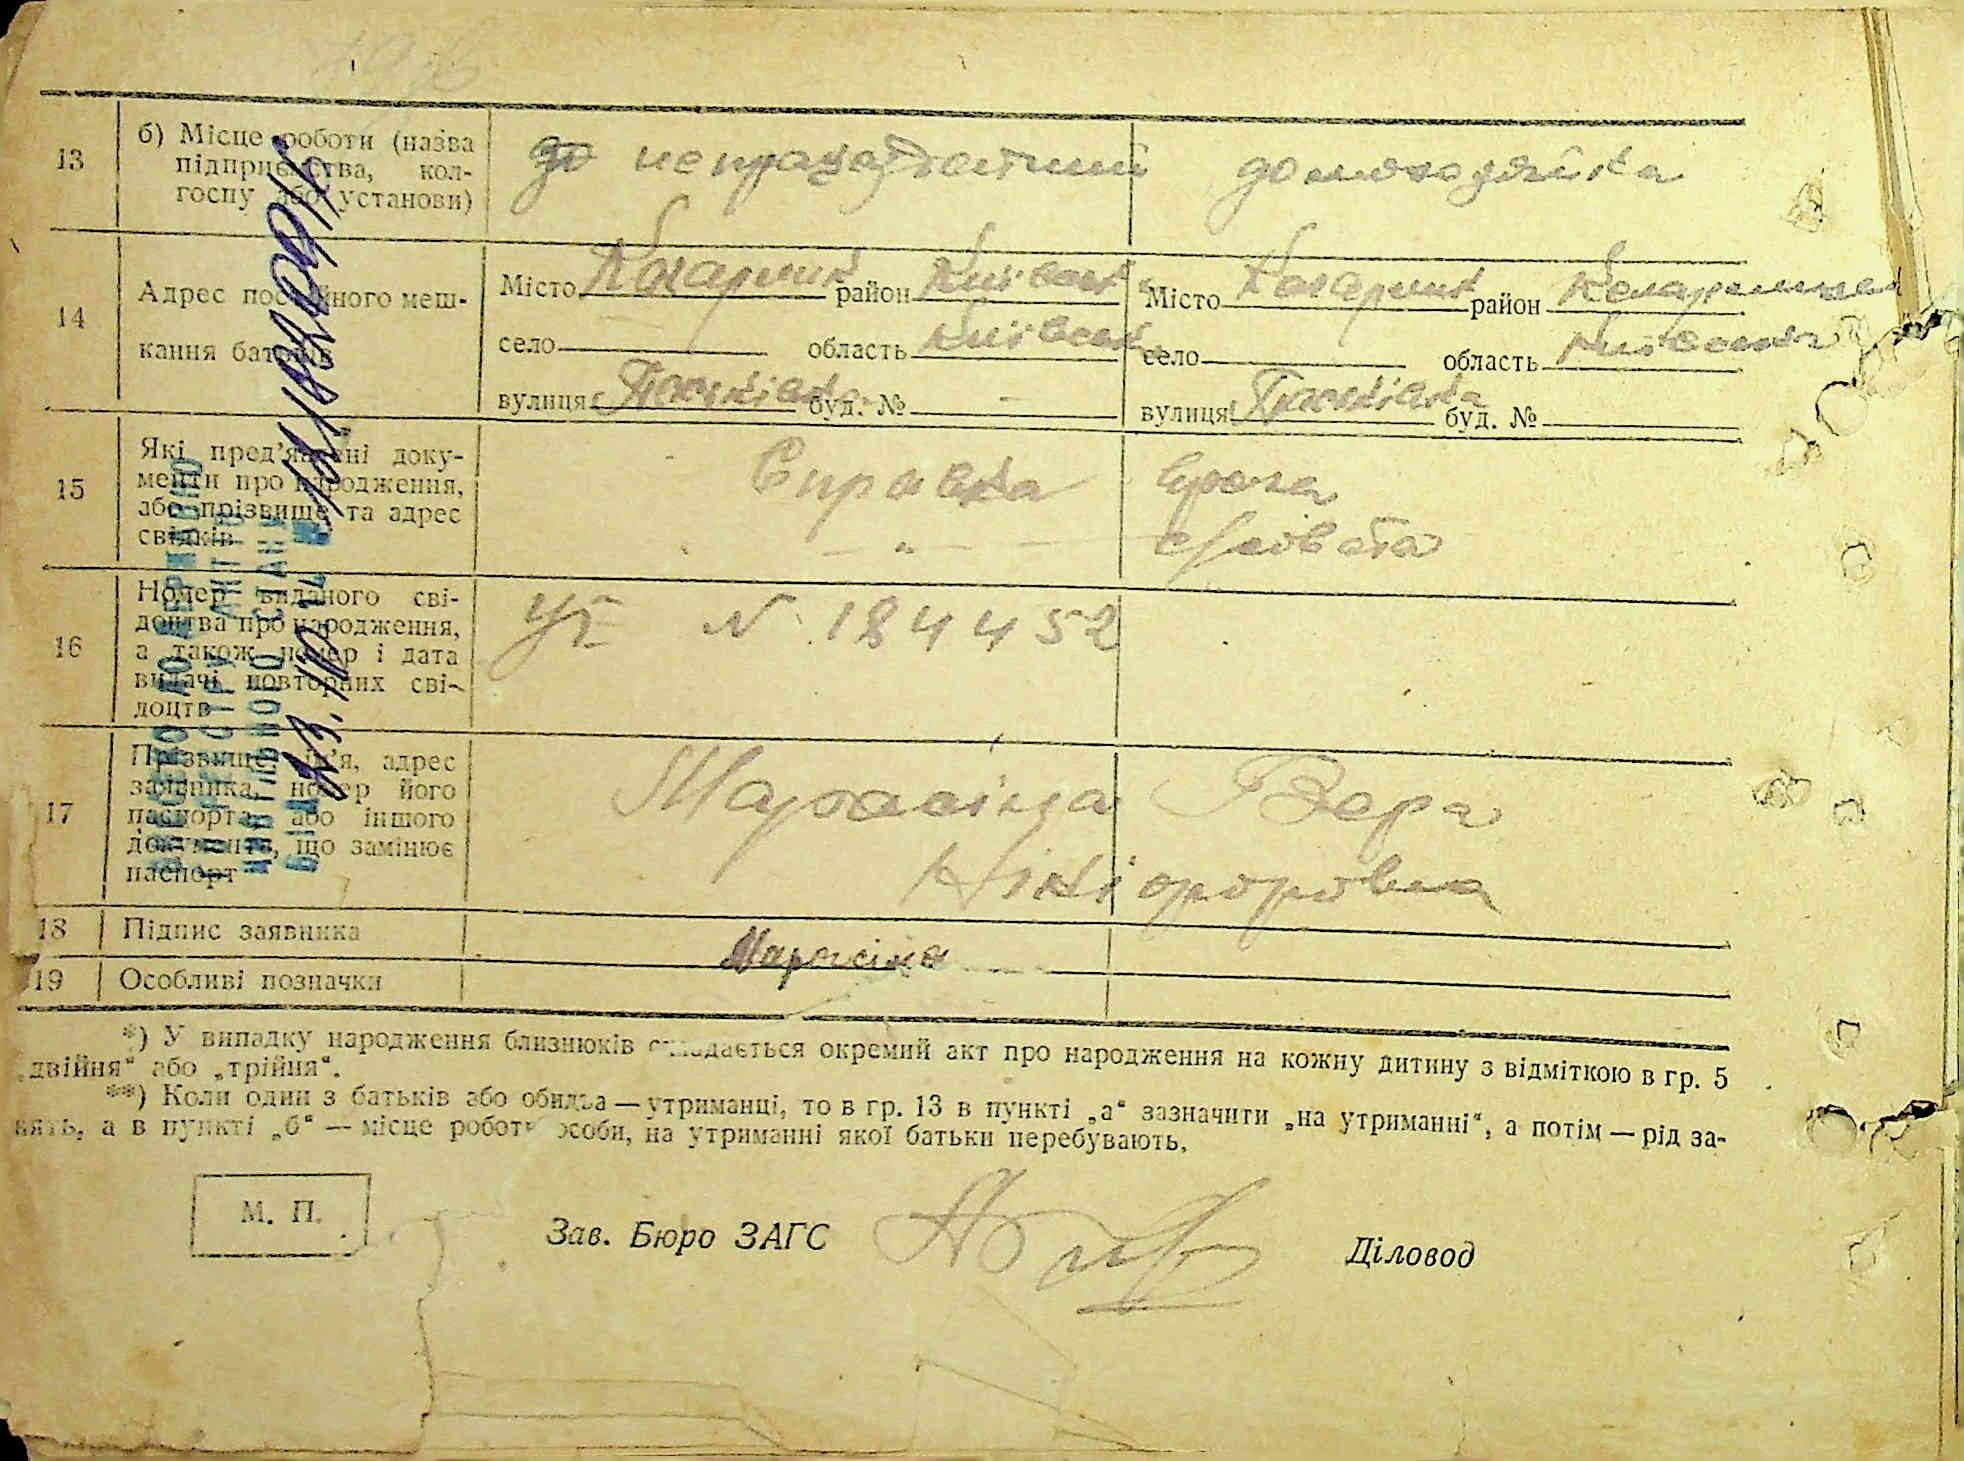 13
б) Місце роботи (назва
підприємства, кол-
госпу або установи)
непрацездатний
домохозяйка
14
Адрес постійного меш-
кання батьків
Місто Кагарлик район Київськ
село область Київськ
вулиця буд. №
Місто Кагарлик район
село область Київська
вулиця буд. №
15
Які пред’явлені доку-
менти про народження,
або прізвище та адрес
свідків
Справка врача
16
Номер виданого сві-
доцтва про народження,
а також номер і дата
видачі повторних сві-
доцтв
N 184452
17
Прізвище, ім’я, адрес
заявника, номер його
паспорта, або іншого
документа, що замінює
паспорт
Вера
Нікіфоровна
18
Підпис заявника
19
Особливі позначки
*) У випадку народження близнюків складається окремий акт про народження на кожну дитину з відміткою в гр. 5
„двійня“ або „трійня“.
**) Коли один з батьків або обидва — утриманці, то в гр. 13 в пункті „а“ зазначити „на утриманні“, а потім — рід за-
нять, а в пункті „б“ — місце роботи особи, на утриманні якої батьки перебувають.
М. П.
Зав. Бюро ЗАГС
Діловод